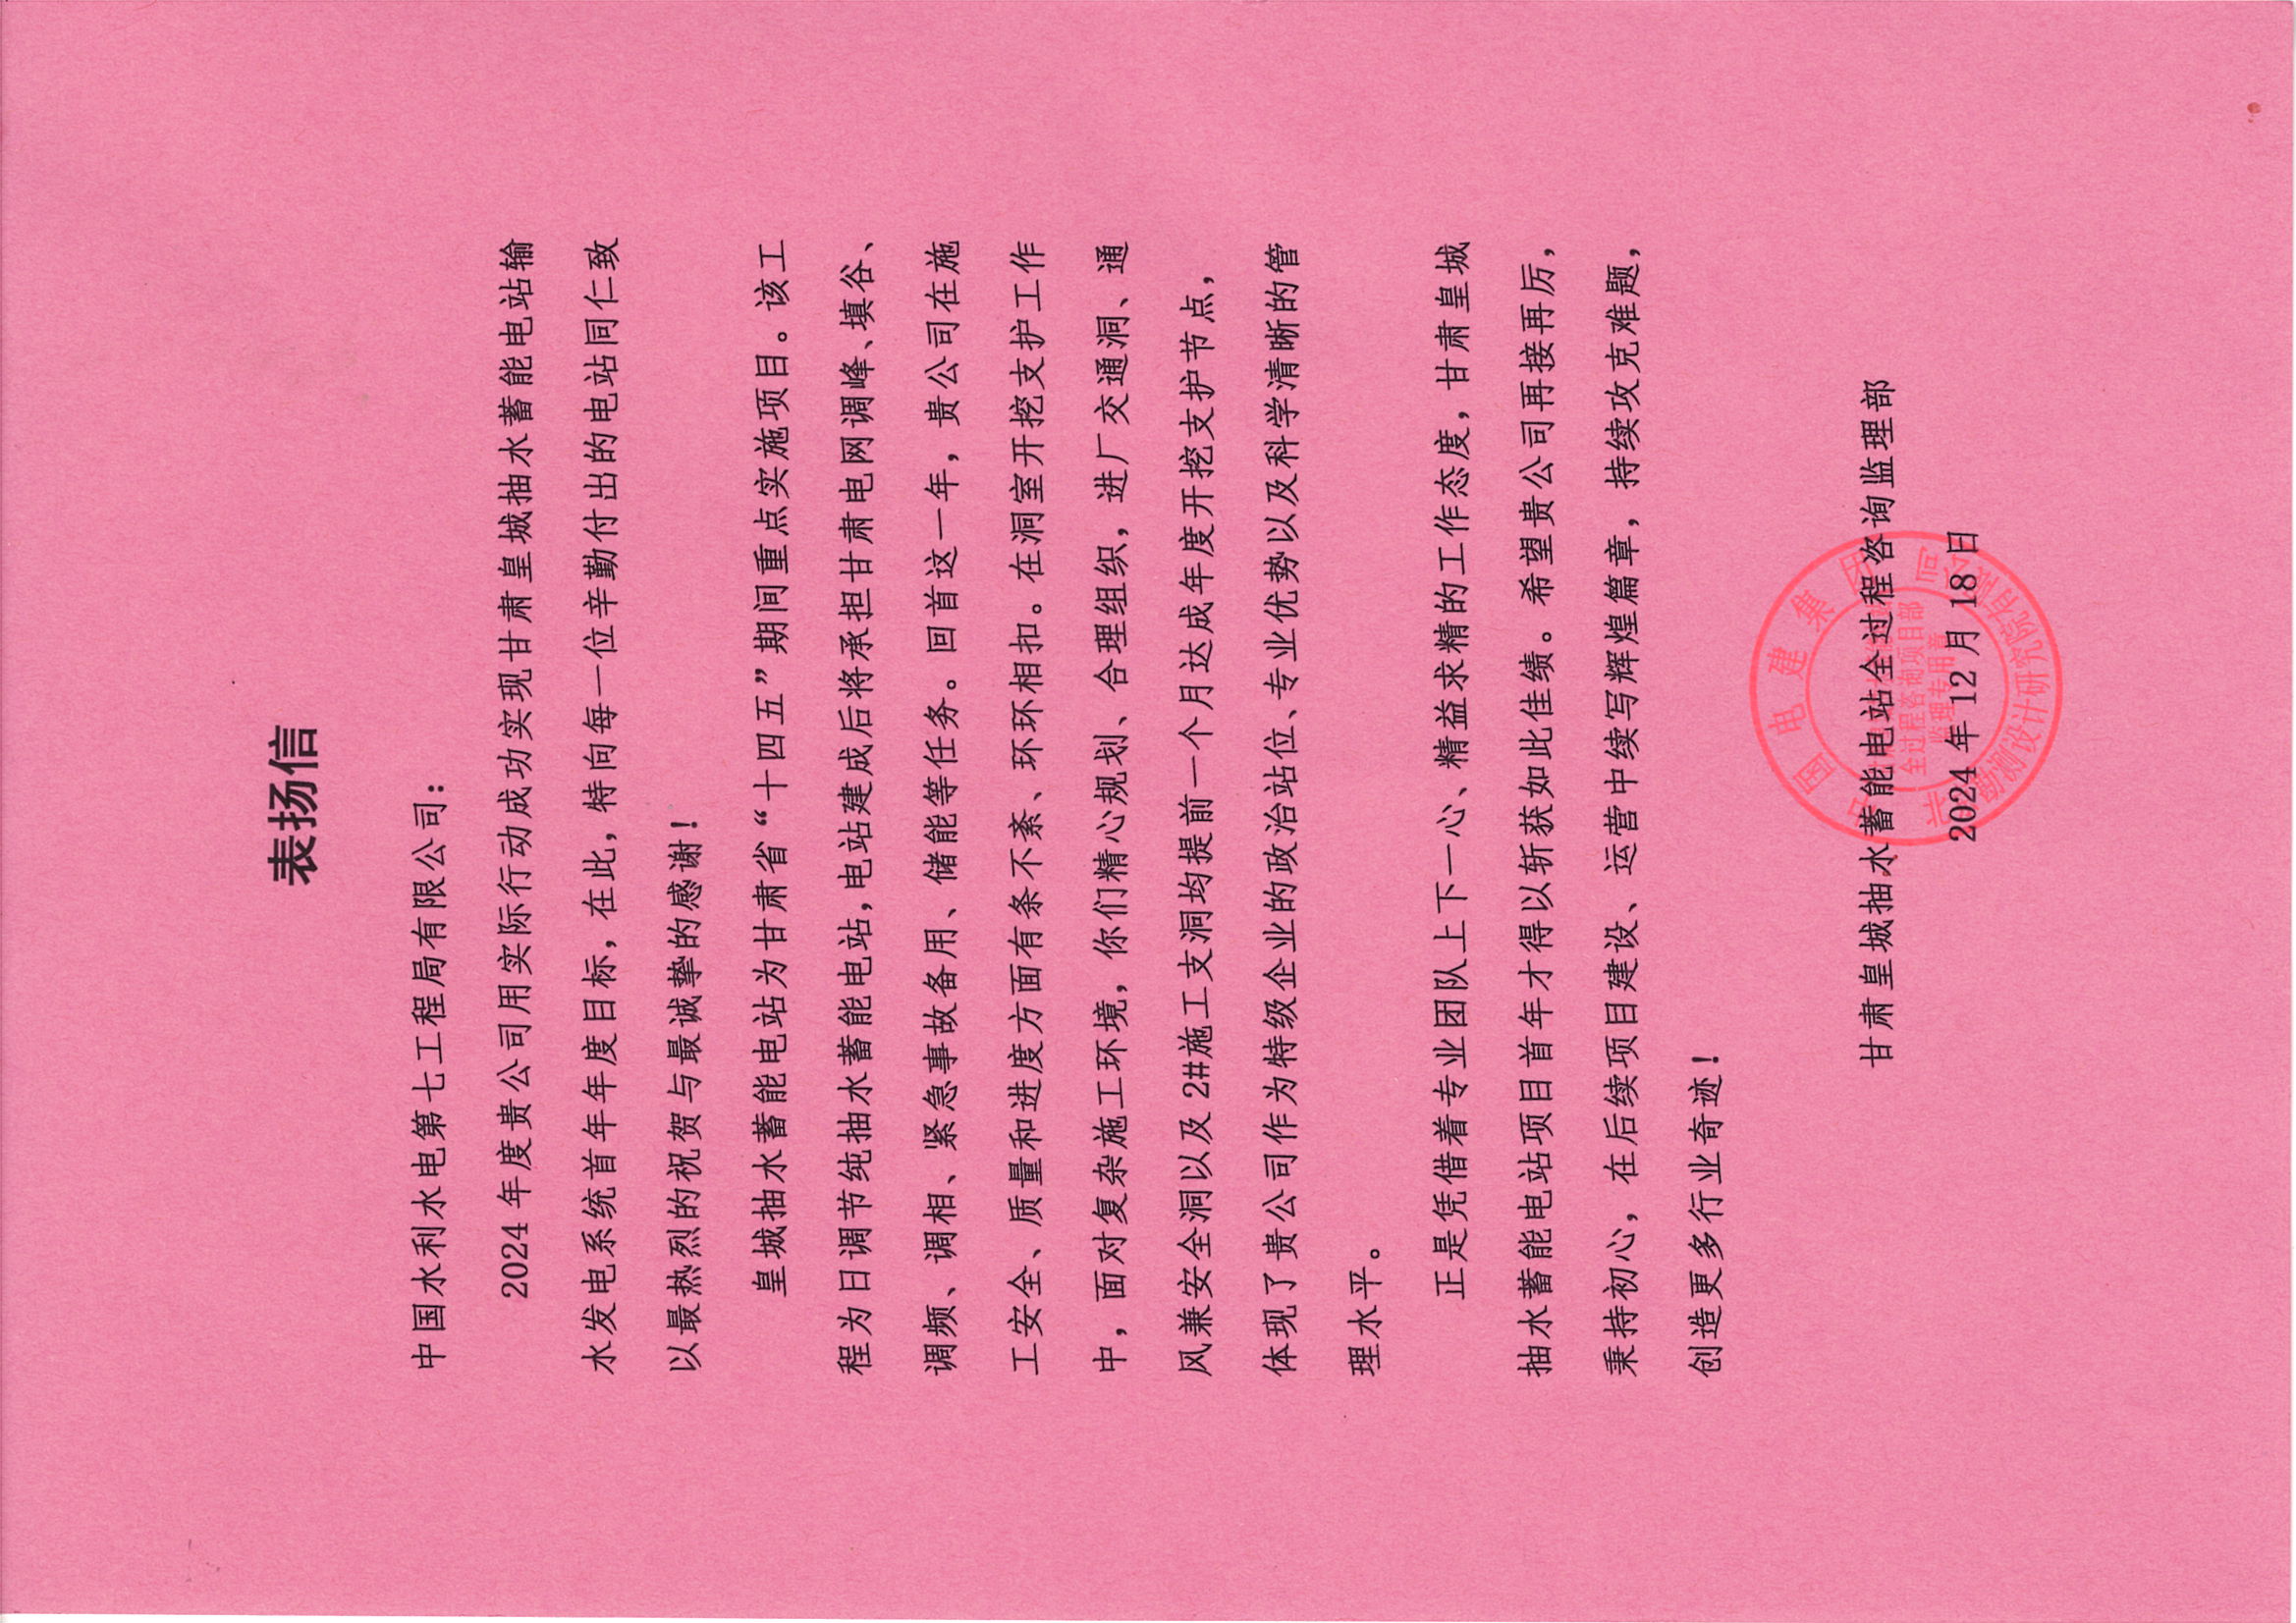 表扬信
中国水利水电第七工程局有限公司：
2024年度贵公司用实际行动成功实现甘肃皇城抽水蓄能电站输
水发电系统首年年度目标，在此，特向每一位辛勤付出的电站同仁致
以最热烈的祝贺与最诚挚的感谢！
皇城抽水蓄能电站为甘肃省“十四五”期间重点实施项目。该工
程为日调节纯抽水蓄能电站，电站建成后将承担甘肃电网调峰、填谷、
调频、调相、紧急事故备用、储能等任务。回首这一年，贵公司在施
工安全、质量和进度方面有条不紊、环环相扣。在洞室开挖支护工作
中，面对复杂施工环境，你们精心规划、合理组织，进厂交通洞、通
风兼安全洞以及2#施工支洞均提前一个月达成年度开挖支护节点，
体现了贵公司作为特级企业的政治站位、专业优势以及科学清晰的管
理水平。
正是凭借着专业团队上下一心、精益求精的工作态度，甘肃皇城
抽水蓄能电站项目首年才得以斩获如此佳绩。希望贵公司再接再厉，
秉持初心，在后续项目建设、运营中续写辉煌篇章，持续攻克难题，
创造更多行业奇迹！
甘肃皇城抽水蓄能电站全过程咨询监理部
2024年12月18日
中国电建集团
勘测设计研究院有限公司
全过程咨询项目部
监理专用章